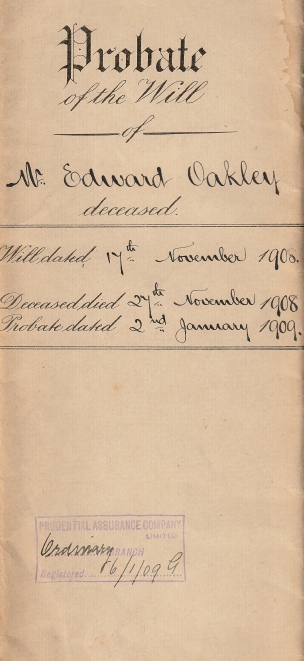 Probate
of the Will
of
Mr. Edward Oakley
deceased.
Will dated 17th November 1908.
Deceased died 27th November 1908
Probate dated 2nd January 1909.
PRUDENTIAL ASSURANCE COMPANY
LIMITED
Ordinary BRANCH
Registered 16/1/09 G